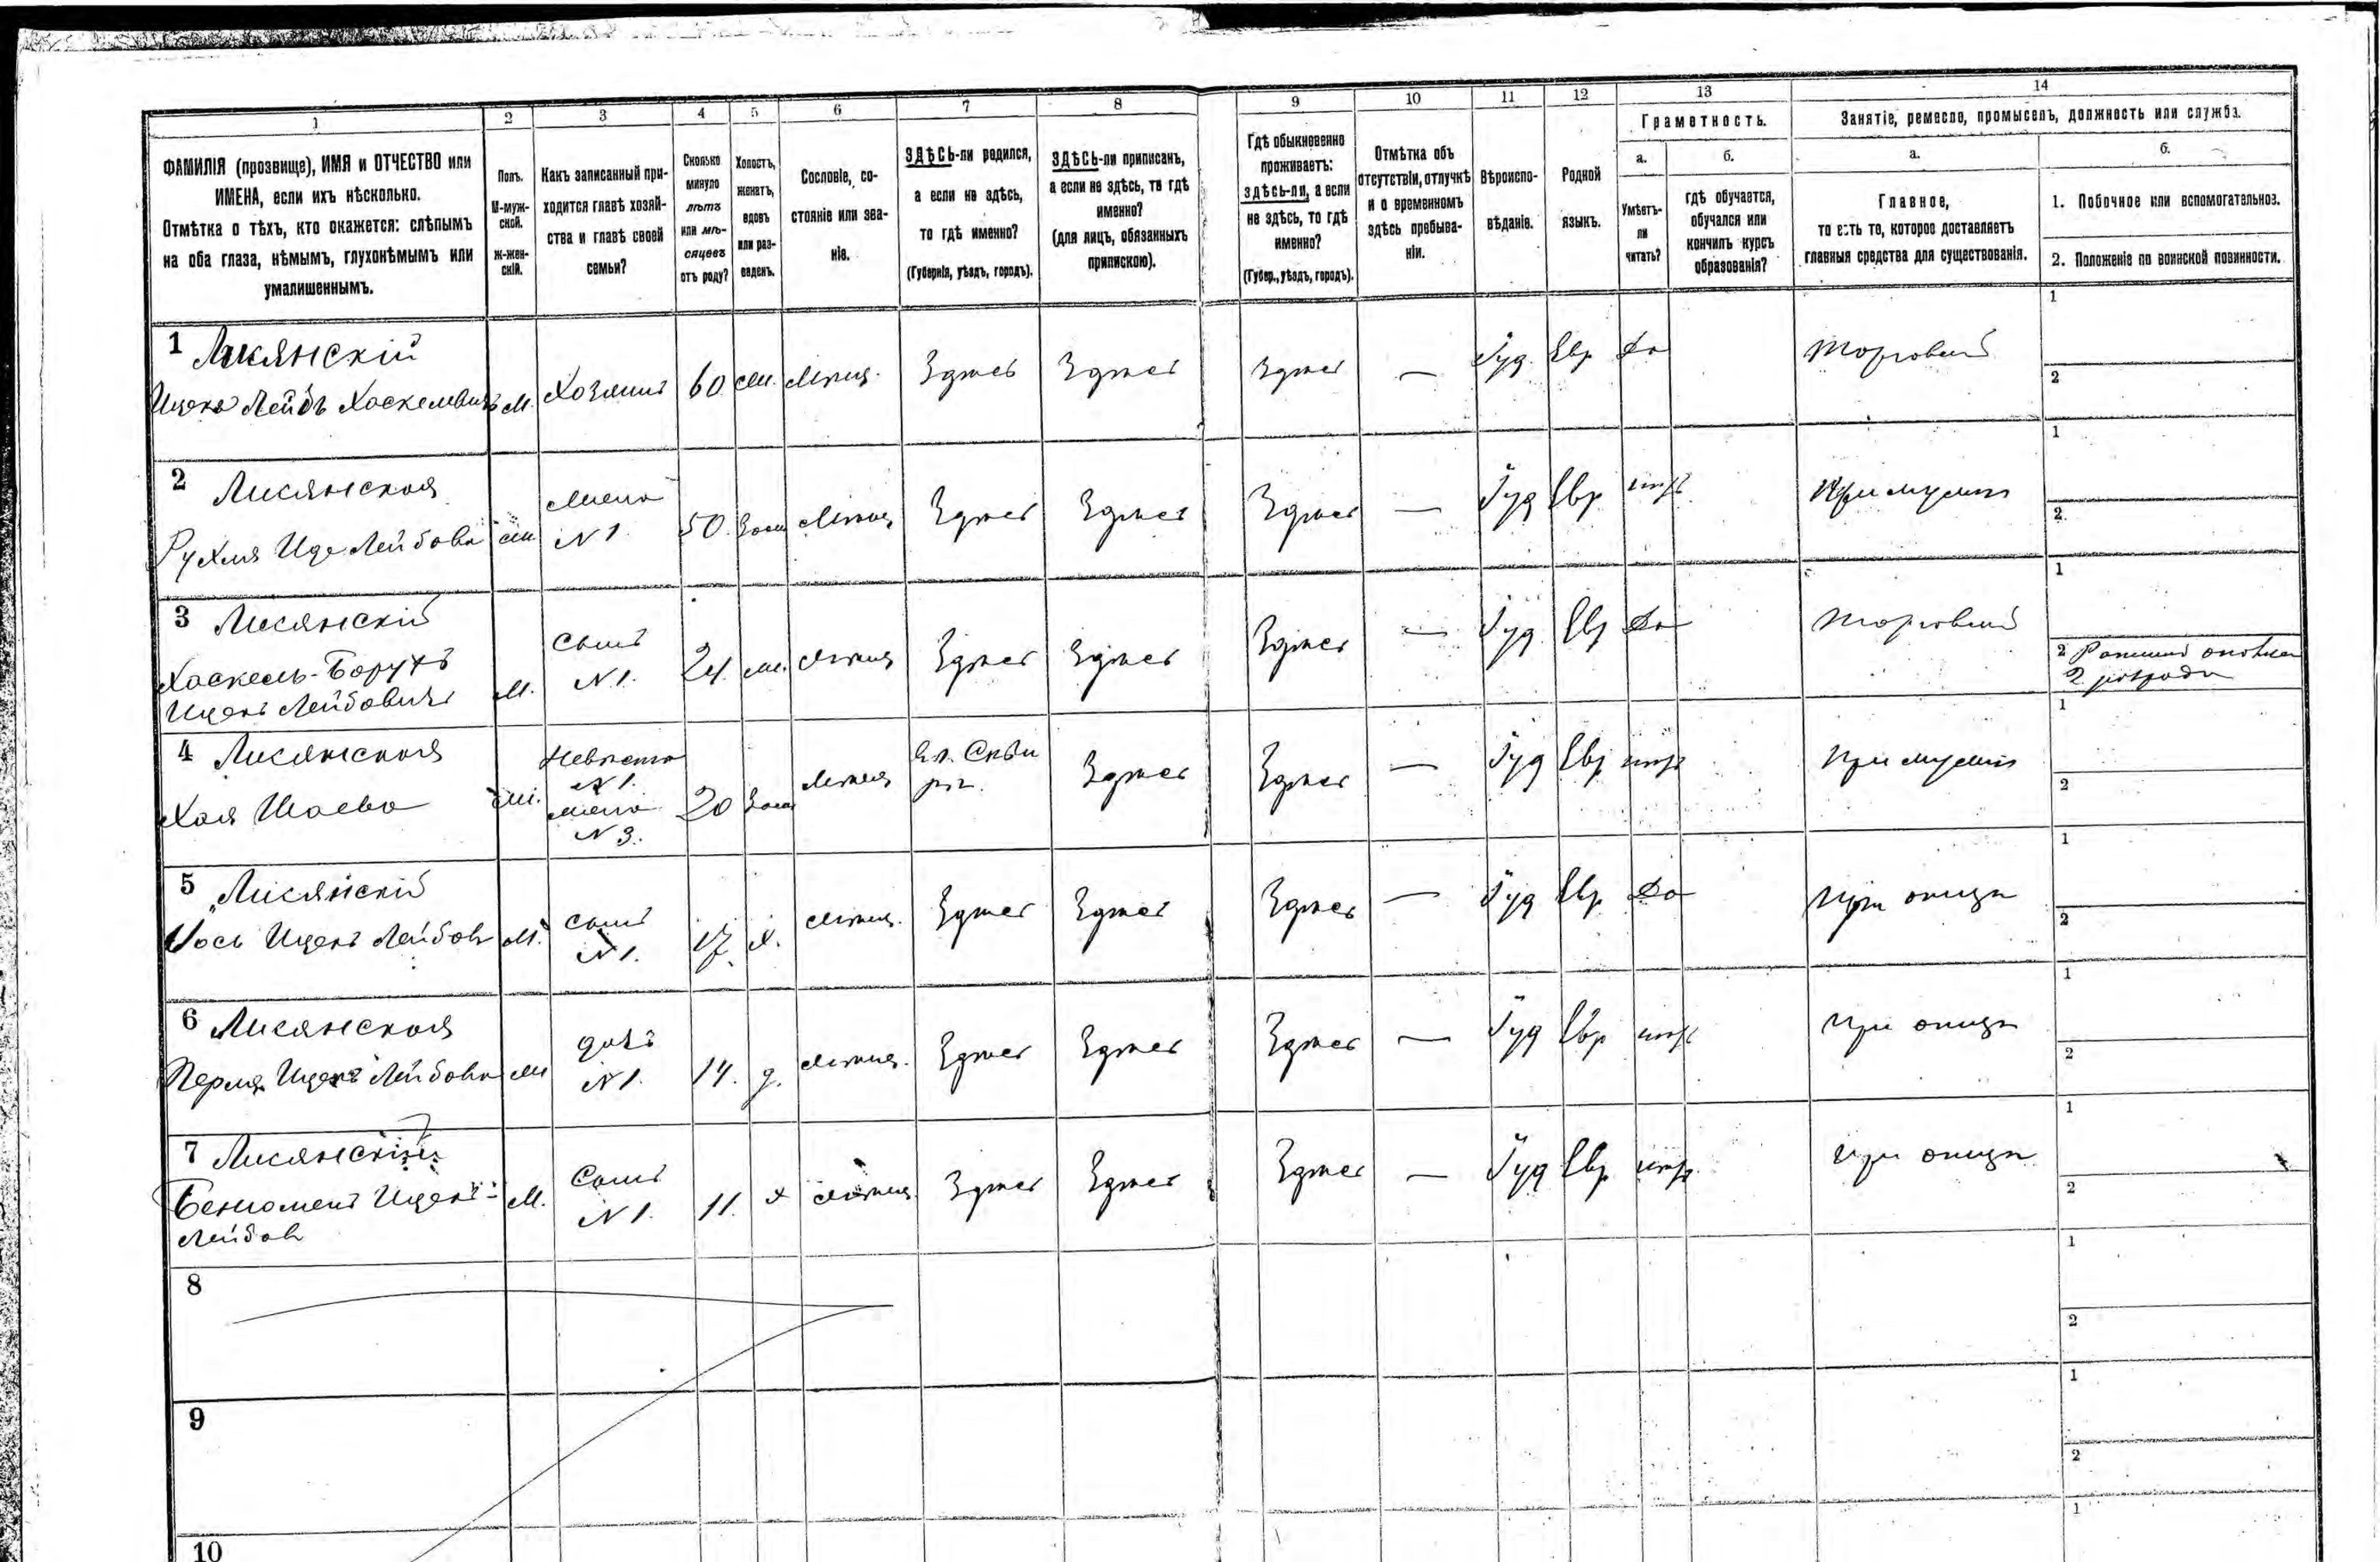 1 2 3 4 5 6 7 8 9 10 11 12 13 14
ФАМИЛІЯ (прозвище), ИМЯ и ОТЧЕСТВО или
ИМЕНА, если ихъ нѣсколько.
Отмѣтка о тѣхъ, кто окажется: слѣпымъ
на оба глаза, нѣмымъ, глухонѣмымъ или
умалишеннымъ.
Полъ.
М-муж-
ской.
Ж-жен-
скій.
Какъ записанный при-
ходится главѣ хозяй-
ства и главѣ своей
семьи?
Сколько
минуло
лѣтъ
или мѣ-
сяцевъ
отъ роду?
Холостъ,
женатъ,
вдовъ
или раз-
веденъ.
Сословіе, со-
стояніе или зва-
ніе.
ЗДѢСЬ-ли родился,
а если не здѣсь,
то гдѣ именно?
(Губернія, уѣздъ, городъ).
ЗДѢСЬ-ли приписанъ,
а если не здѣсь, то гдѣ
именно?
(для лицъ, обязанныхъ
припискою).
Гдѣ обыкновенно
проживаетъ:
здѣсь-ли, а если
не здѣсь, то гдѣ
именно?
(Губер., уѣздъ, городъ).
Отмѣтка объ
отсутствіи, отлучкѣ
и о временномъ
здѣсь пребыва-
ніи.
Вѣроиспо-
вѣданіе.
Родной
языкъ.
Грамотность.
а.
Умѣетъ-
ли
читать?
б.
гдѣ обучается,
обучался или
кончилъ курсъ
образованія?
Занятіе, ремесло, промыселъ, должность или служба.
а.
Главное,
то есть то, которое доставляетъ
главныя средства для существованія.
б.
1. Побочное или вспомогательное.
2. Положеніе по воинской повинности.
1 Лисянскій
Ицекъ Лейбъ Хаскелевичъ М. Хозяинъ 60 ж. мѣщ. Здѣсь Здѣсь Здѣсь — Іуд. Евр Да Торговый
1
2
2 Лисянская
Рухля Ицк Лейбова ж жена
N 1. 50. Зам мѣщ Здѣсь Здѣсь Здѣсь — Іуд Евр нѣтъ При мужѣ
1
2
3 Лисянскій
Хаскель-Борухъ
Ицекъ Лейбовичъ М. Сынъ
N 1. 24. ж. мѣщ Здѣсь Здѣсь Здѣсь — Іуд. Евр Да Торговый
1
2 Ратникъ ополчен
2 разряда
4 Лисянская
Хая Шаева ж. Невѣстка
N 1.
жена
N 3. 20 Зам мѣщ Здѣсь Здѣсь — Іуд Евр нѣтъ При мужѣ
1
2
5 Лисянскій
Іось Ицекъ Лейбов М. сынъ
N 1. 17. х. мѣщ. Здѣсь Здѣсь Здѣсь — Іуд Евр Да При отцѣ
1
2
6 Лисянская
Перля Ицекъ Лейбова ж дочь
N 1. 14. д. мѣщ. Здѣсь Здѣсь Здѣсь — Іуд Евр нѣтъ При отцѣ
1
2
7 Лисянскій
Беньоменъ Ицекъ-
Лейбов М. Сынъ
N 1. 11. х мѣщ. Здѣсь Здѣсь Здѣсь — Іуд Евр нѣтъ. При отцѣ
1
2
8
1
2
9
1
2
10
1